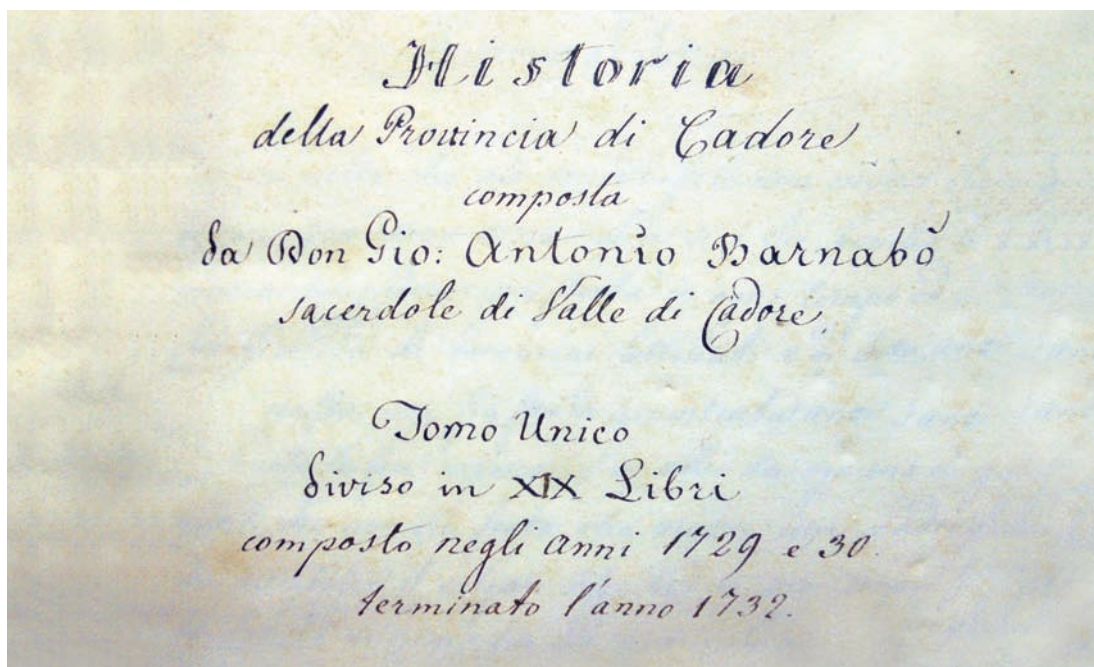 Historia
della Provincia di Cadore
composta
da Don Gio: Antonio Barnabò
sacerdote di Valle di Cadore.
Tomo Unico
diviso in XIX Libri
composto negli anni 1729 e 30.
terminato l'anno 1732.